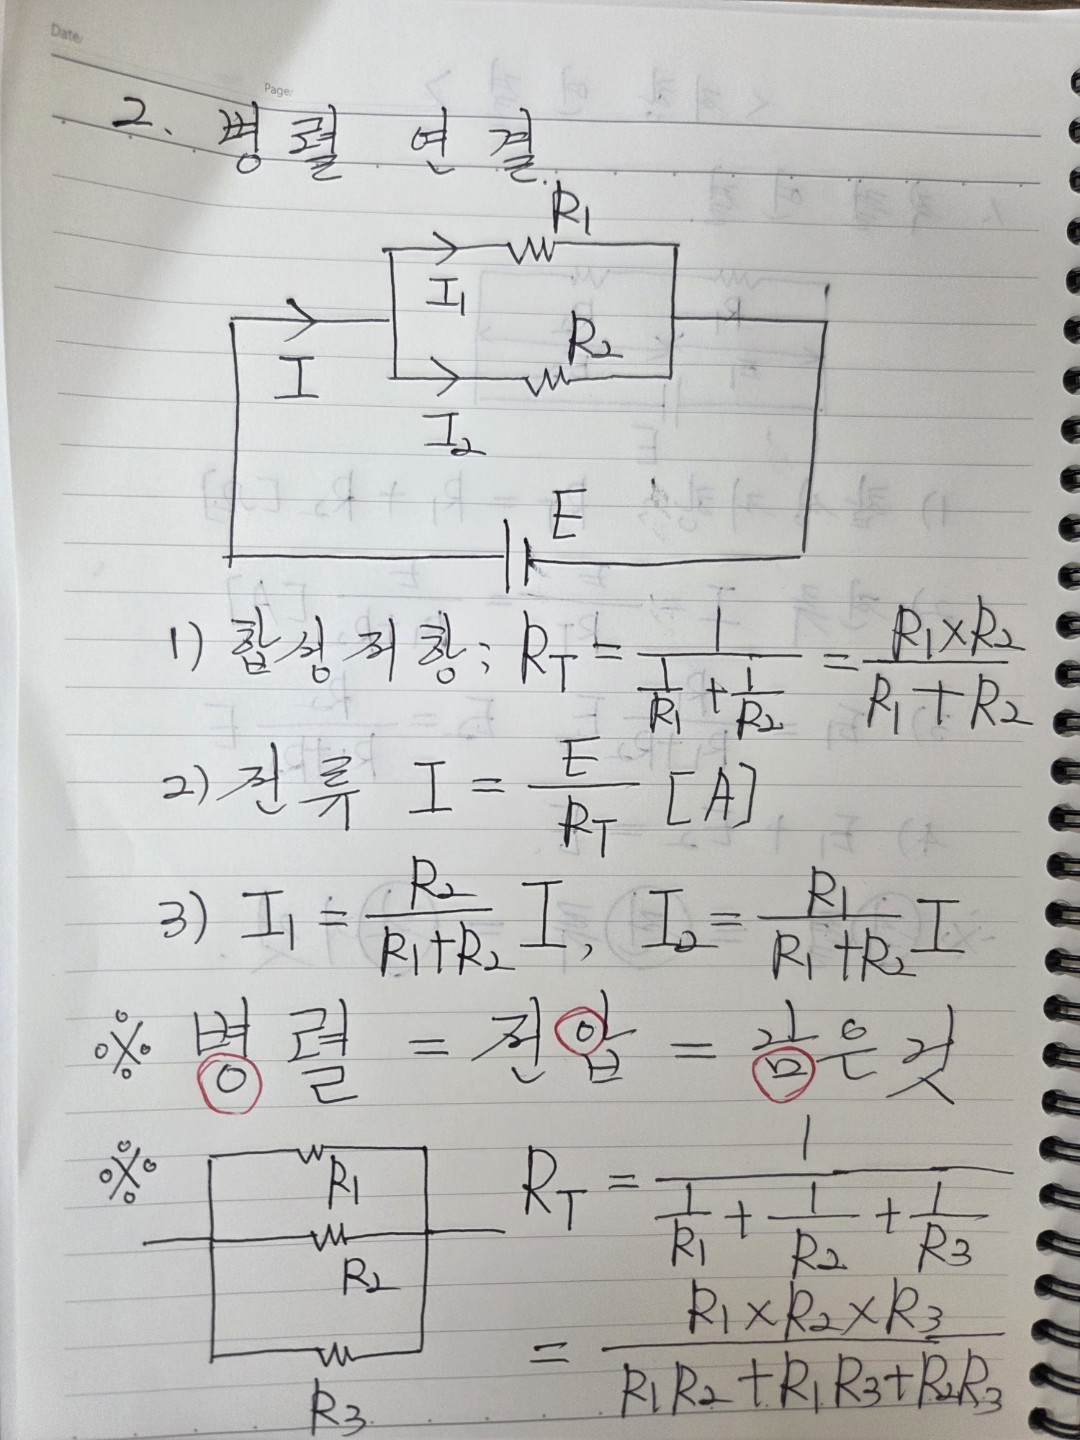 Date/
Page:
2. 병렬 연결
R₁
I₁
I
R₂
I₂
E
1) 합성저항; R_T = 1/(1/R₁ + 1/R₂) = (R₁×R₂)/(R₁+R₂)
2) 전류 I = E/R_T [A]
3) I₁ = R₂/(R₁+R₂) I, I₂ = R₁/(R₁+R₂) I
※ 병렬 = 전압 = 같은 것
※ R₁ R_T = 1/(1/R₁ + 1/R₂ + 1/R₃)
R₂
= (R₁×R₂×R₃)/(R₁R₂+R₁R₃+R₂R₃)
R₃